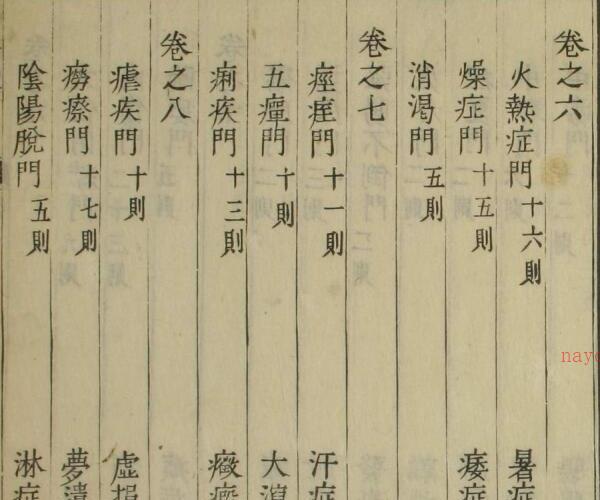 卷之六
火熱症門十六則 暑症
燥症門十五則 痿症
消渴門五則
卷之七
痙痓門十一則 汗症
五癉門十則 大瀉
痢疾門十三則 癥瘕
卷之八
瘧疾門十則 虛損
癆瘵門十七則 夢遺
陰陽脫門五則 淋症